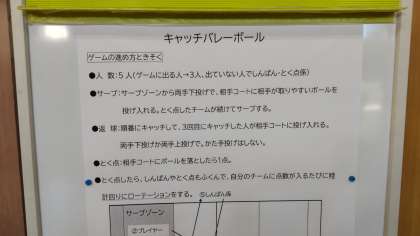 キャッチバレーボール
ゲームの進め方ときそく
●人 数：5人（ゲームに出る人→3人、出ていない人でしんぱん・とく点係）
●サーブ：サーブゾーンから両手下投げで、相手コートに相手が取りやすいボールを
投げ入れる。とく点したチームが続けてサーブする。
●返 球：順番にキャッチして、3回目にキャッチした人が相手コートに投げ入れる。
両手下投げか両手上投げで。かた手投げはしない。
●とく点：相手コートにボールを落としたら1点。
●とく点したら、しんぱんやとく点もふくんで、自分のチームに点数が入るたびに時
計回りにローテーションをする。 ⑤しんぱん係
サーブゾーン
②プレイヤー